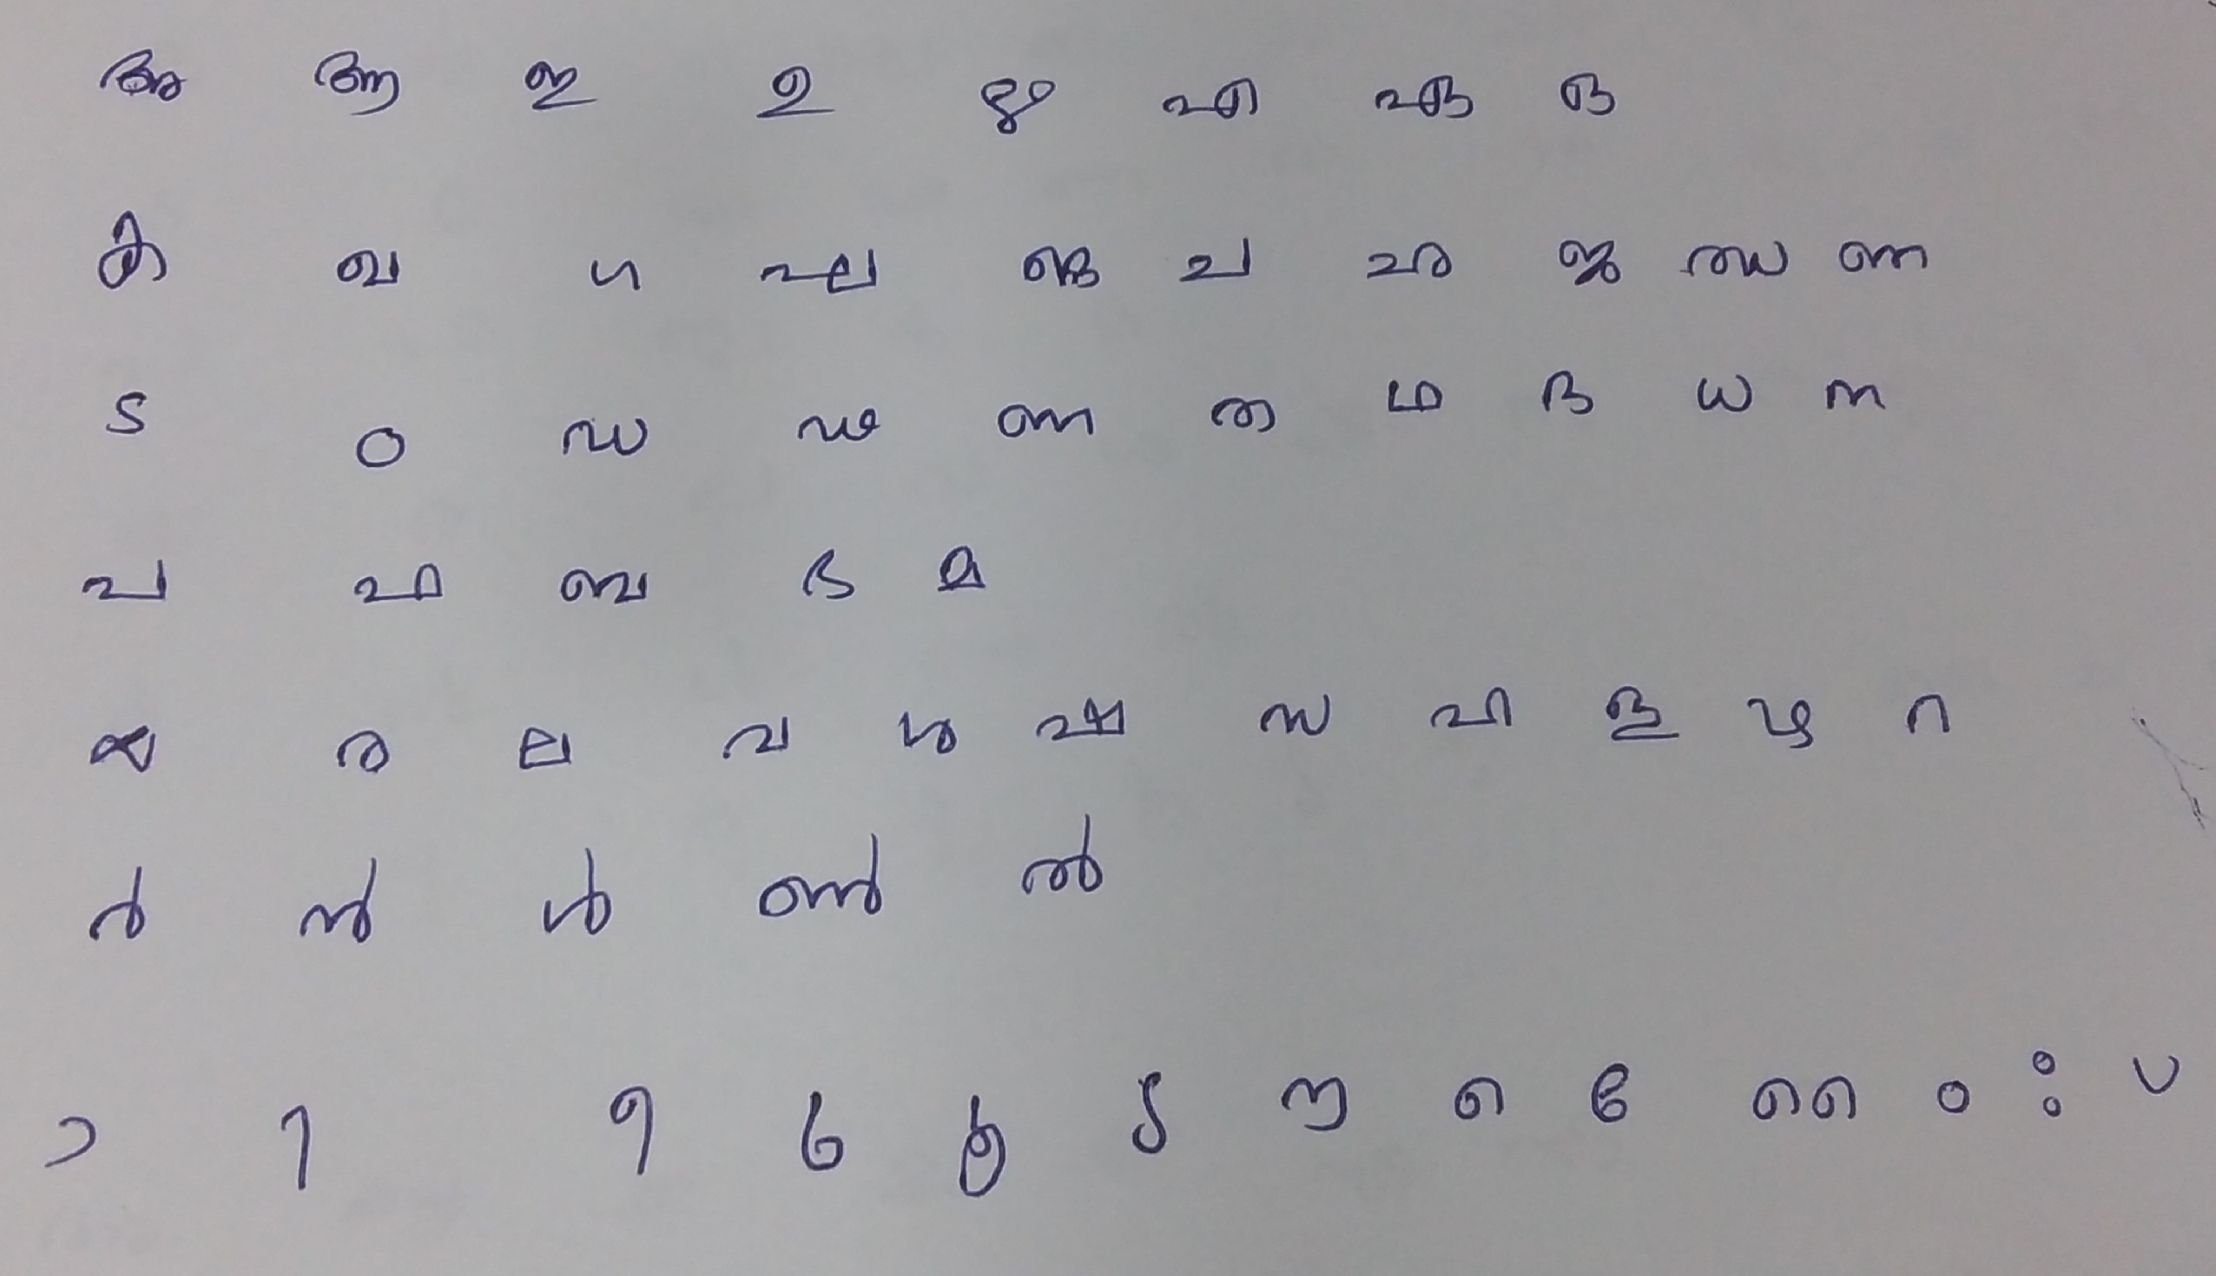 അ ആ ഇ ഉ ഋ എ ഏ ഒ
ക ഖ ഗ ഘ ങ ച ഛ ജ ഝ ണ
ട ഠ ഡ ഢ ണ ത ഥ ദ ധ ന
പ ഫ ബ ഭ മ
യ ര ല വ ശ ഷ സ ഹ ള ഴ റ
ർ ൻ ൾ ൺ ൽ
ാ ി ീ ു ൂ ൃ ൗ െ േ ൈ ം ഃ ്